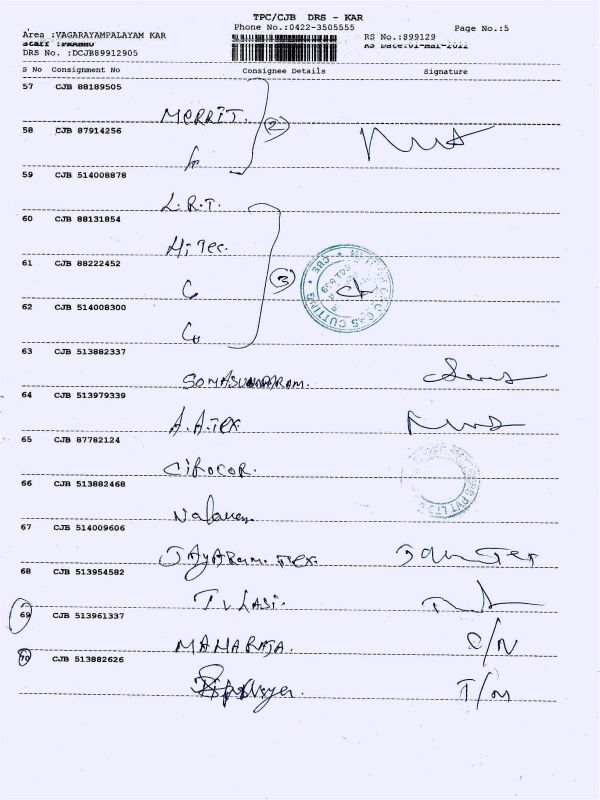 TPC/CJB DRS - KAR
Phone No.:0422-3505555 Page No.:5
Area :VAGARAYAMPALAYAM KAR RS No.:899129
Staff :PRABHU RS Date:01-Mar-2012
DRS No. :DCJB89912905
S No Consignment No Consignee Details Signature
57 CJB 88189505
MERRIT.
58 CJB 87914256 2
59 CJB 514008878
L.R.T.
60 CJB 88131854
Hi Tec.
61 CJB 88222452
3
62 CJB 514008300
63 CJB 513882337
SOMASUNDARAM.
64 CJB 513979339
A.A.Tex
65 CJB 87782124
CIROCOR.
66 CJB 513882468
67 CJB 514009606
JAYARam. Tex.
68 CJB 513954582
TULASI.
69 CJB 513961337
MAHARAJA. C/N
70 CJB 513882626
T/M